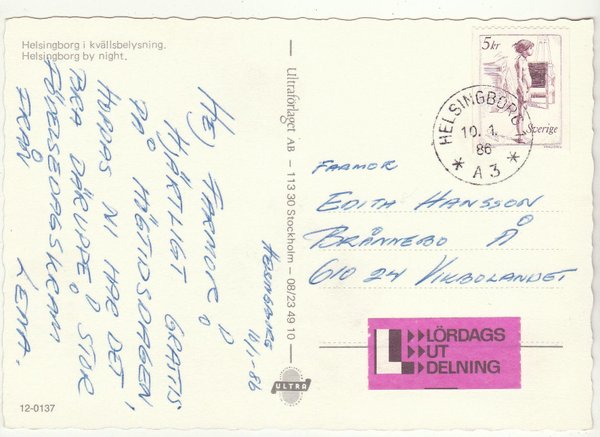 Helsingborg i kvällsbelysning.
Helsingborg by night.
HELSINGBORG
10/1-86
HEJ FARMOR!
HJÄRTLIGT GRATTIS
PÅ HÖGTIDSDAGEN,
HOPPAS NI HAR DET
BRA DÄRUPPE! STOR
FÖDELSEDAGSKRAM
FRÅN
LENA.
Ultraförlaget AB – 113 30 Stockholm – 08/23 49 10
ULTRA
12-0137
5 kr
Sverige
HELSINGBORG 1
10. 1.
86
* A 3 *
FARMOR
EDITH HANSSON
BRÄNNEBO Å
610 24 VIKBOLANDET
L LÖRDAGS
UT
DELNING